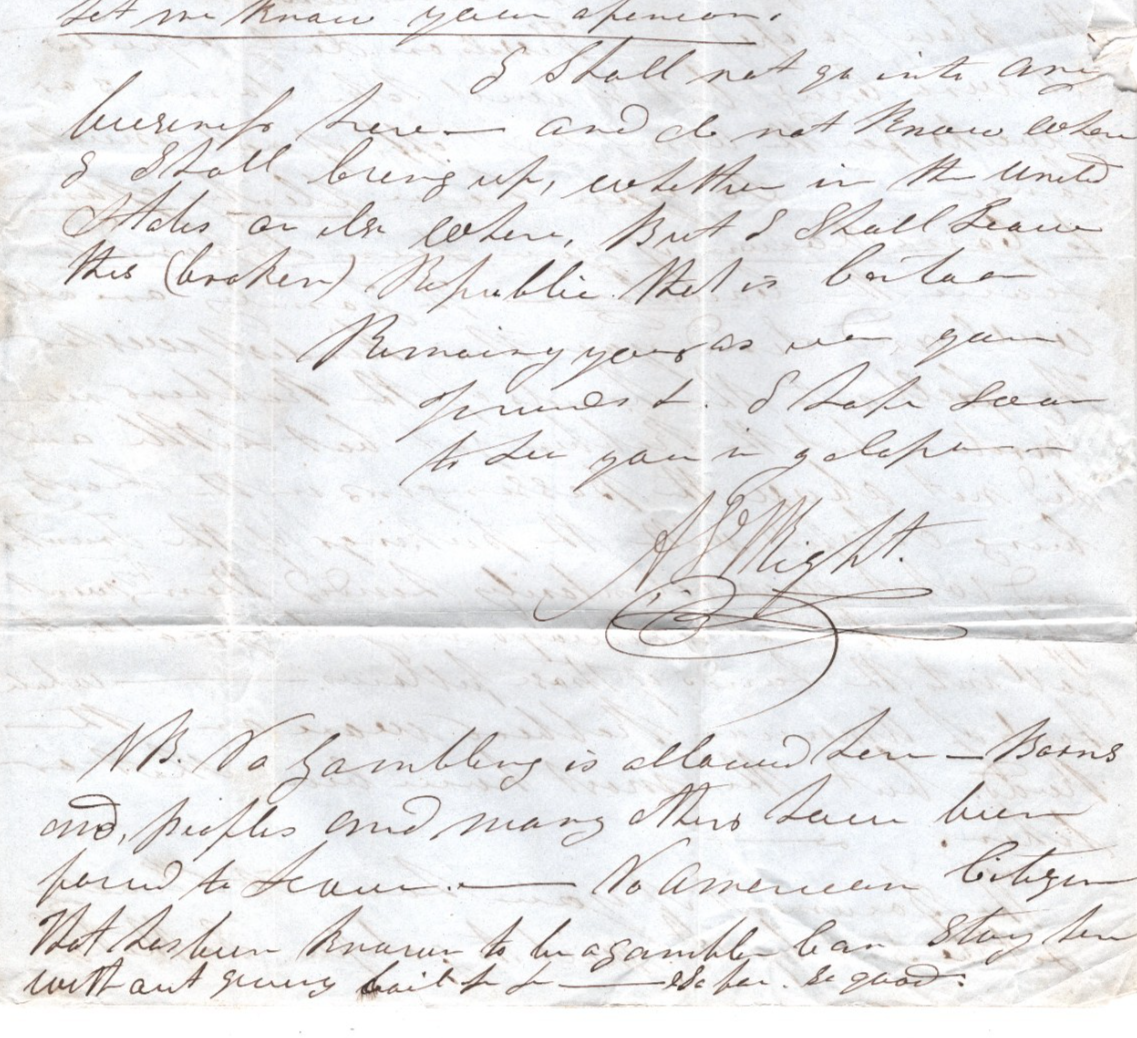 let me know your opinion.
I Shall not go into any
business here — and do not Know where
I Shall bring up, whether in the United
States or else Where, But I Shall Leave
this (broken) Republic. that is Certain
Remaining yours as ever your
friend &. I hope soon
to see you in
A J Wright.
NB. No Gambling is allowed here — Barns
and, peoples and many others have been
forced to Leave. — No American Citizen
that has been Known to be a gambler Can Stay here
without giving bail &c &c — So far. so good.